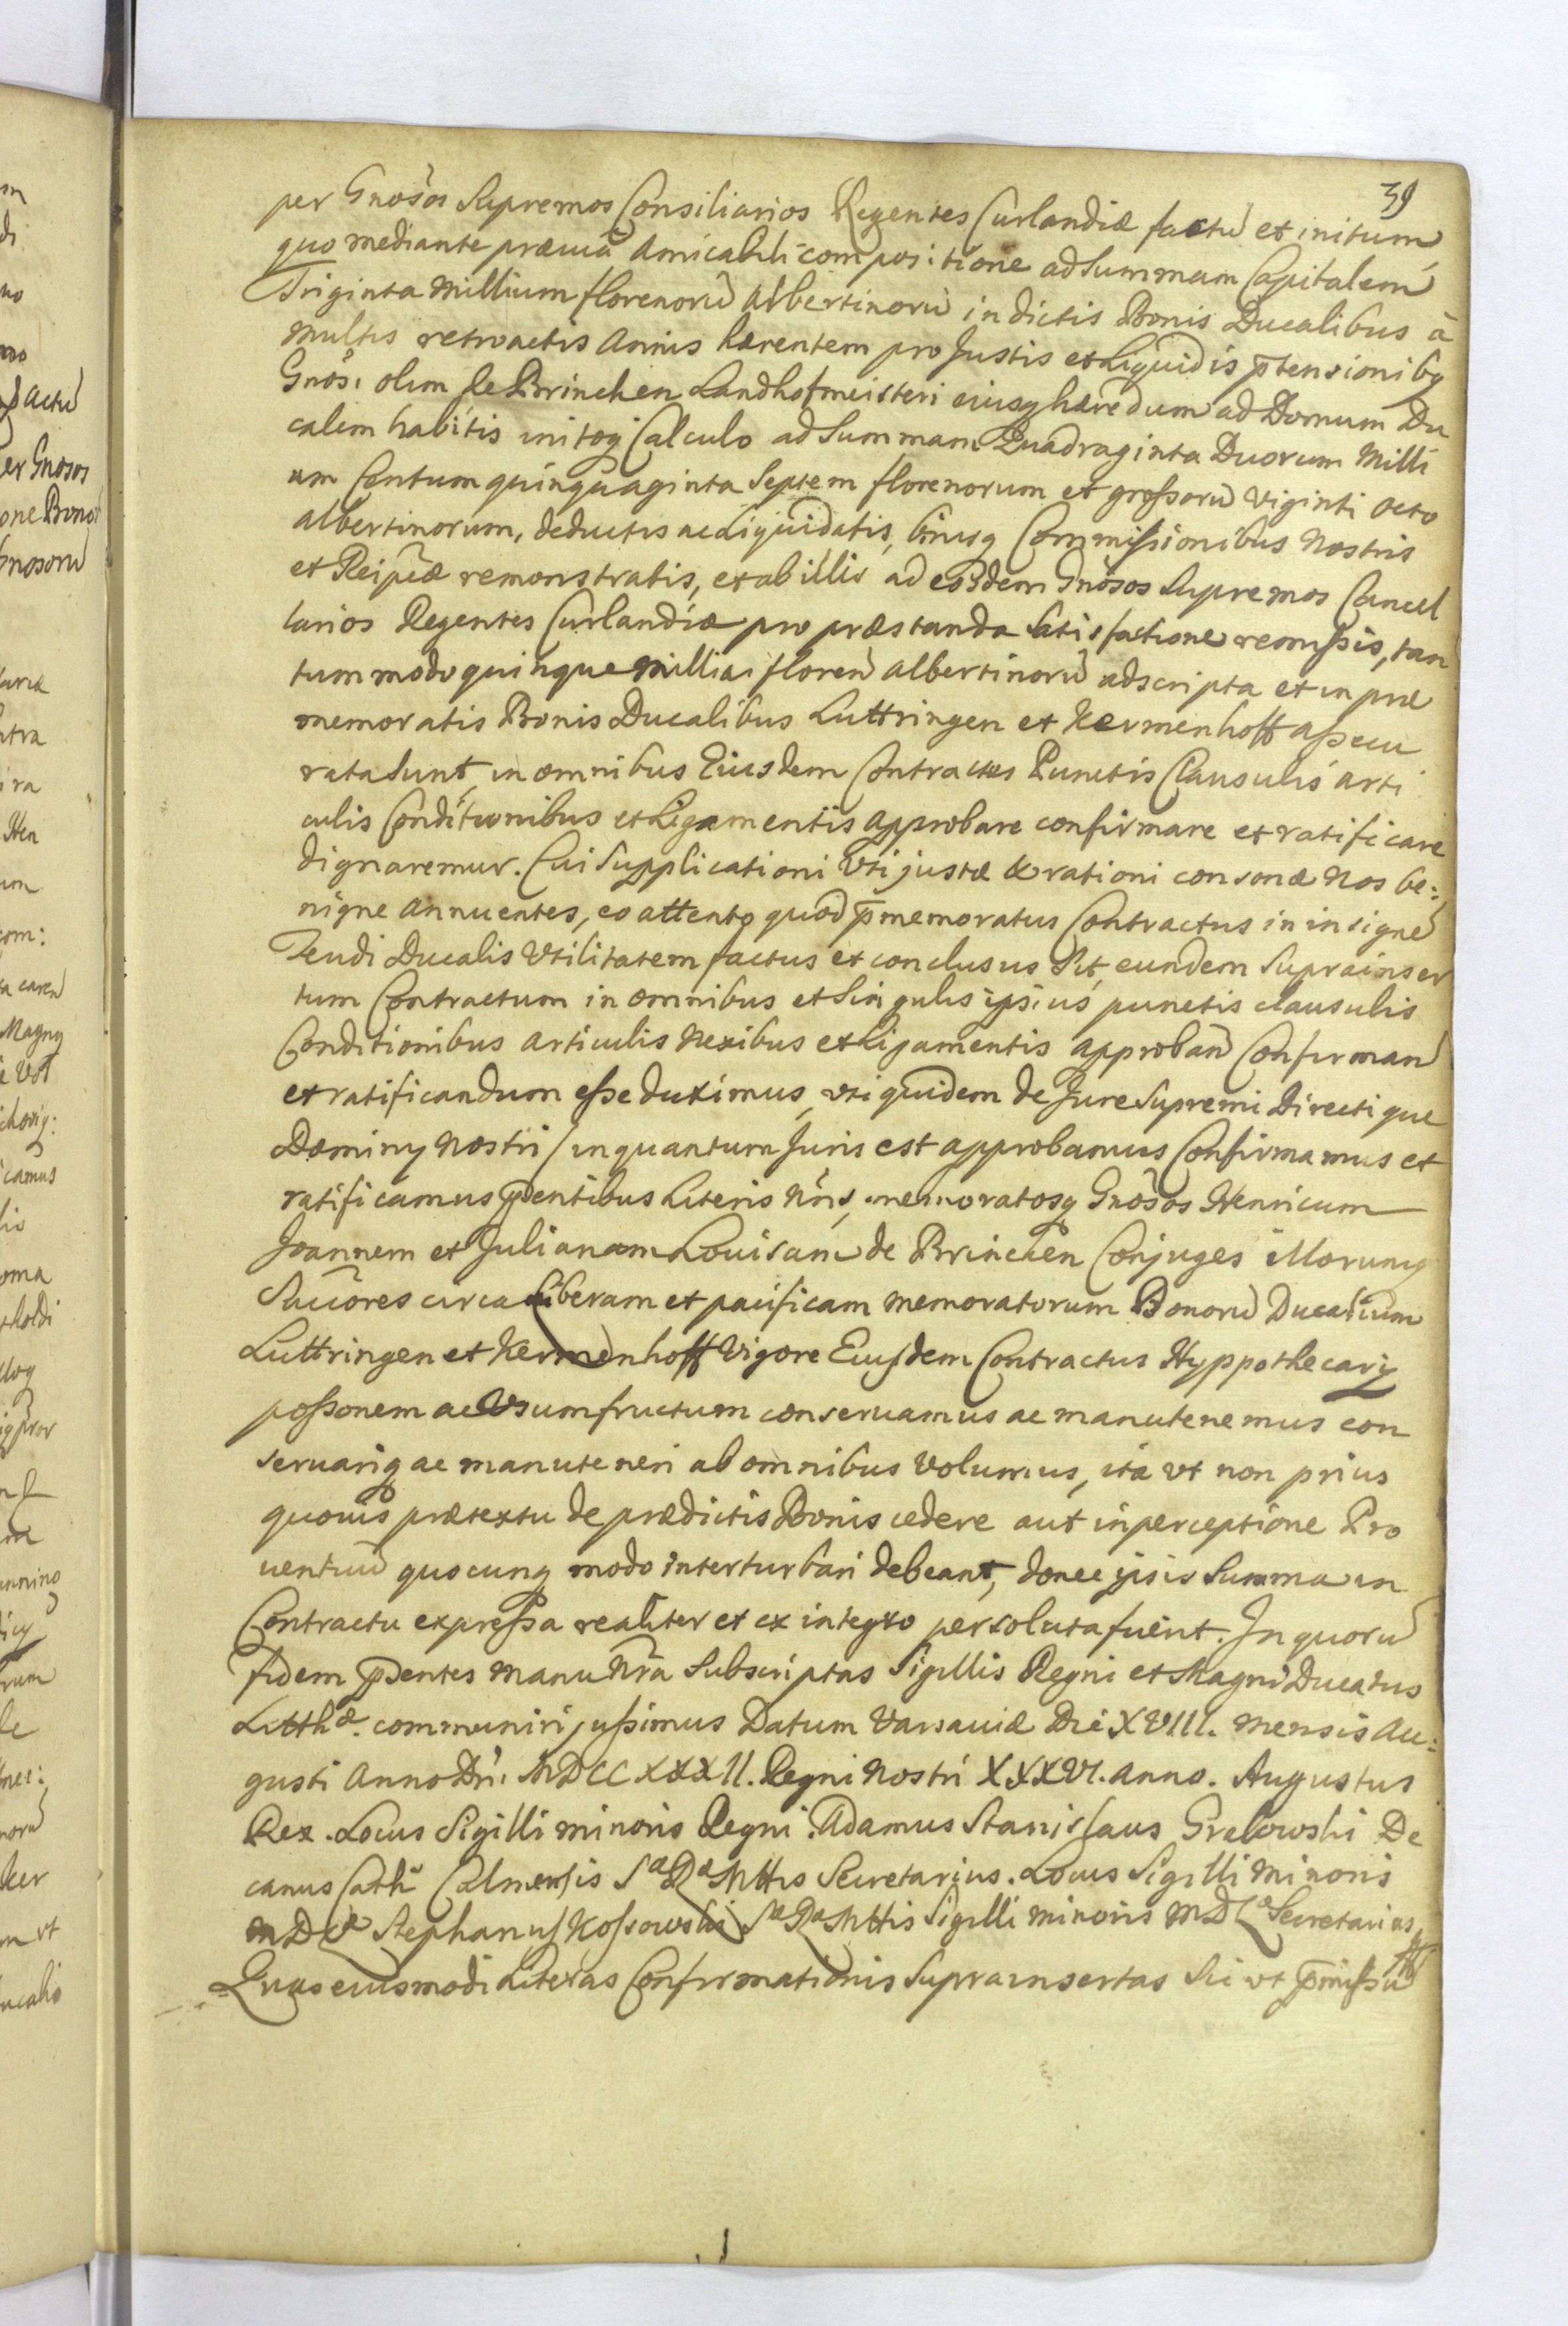 39
per Gnosos Supremos Consiliarios Regentes Curlandiæ factū et initum
quo mediante præuia amicabili compositione ad Summam Capitalem
Triginta Millium florenorū Albertinorū in dictis Bonis Ducalibus à
multis retroactis Annis hærentem pro Justis et Liquidis p̄tensionibq
Gnosi olim de Brincken Landhofmeisteri eiusq hæredum ad Domum Du
calem habitis initoq Calculo ad Summam Quadraginta Duorum Milli
um Centum quinquaginta Septem florenorum et grossorū Viginti octo
Albertinorum, deductis ac Liquidatis, binisq Commissionibus Nostris
et Reipcæ remonstratis, et ab illis ad eosdem Gnosos Supremos Cancel
larios Regentes Curlandiæ pro præstanda Satisfactione remissis, tan
tummodo quinque Millia floren̄ Albertinorū adscripta et in præ
memoratis Bonis Ducalibus Luttringen et Kermenhoff assecu
rata Sunt, in omnibus Eiusdem Contractus Punctis Clausulis arti
culis Conditionibus et Ligamentis approbare confirmare et ratificare
dignaremur. Cui Supplicationi Vti justæ & rationi consonæ Nos be:
nigne annuentes, eo attento quod p̄memoratus Contractus in insigne
Feudi Ducalis Vtilitatem factus et conclusus Sit, eundem Suprainser
tum Contractum in omnibus et Singulis ipsius punctis clausulis
Conditionibus articulis Nexibus et Ligamentis approban̄ Confirman̄
et ratificandum esse duximus, vti quidem de Jure Supremi Directique
Dominy Nostri / in quantum Juris est approbamus Confirmamus et
ratificamus p̄dentibus Literis Nris, memoratosq Gnosos Henricum
Joannem et Julianam Louisam de Brincken Conjuges illorumq
Succores circa liberam et pacificam memoratorum Bonorū Ducalium
Luttringen et Kermenhoff Vigore Eiusdem Contractus Hyppothecarij
possonem ac Vsumfructum conseruamus ac manutenemus con
seruariq ac manuteneri ab omnibus Volumus, ita vt non prius
quouis prætextu de prædictis Bonis cedere aut in perceptione Pro
uentuū quocunq modo interturbari debeant, donec ipsis Summa in
Contractu expressa realiter et ex integro persoluta fuerit. In quorū
fidem p̄dentes Manu Nrā Subscriptas Sigillis Regni et Magni Ducatus
Litthæ. communiri jussimus Datum Varsauiæ Die XVIII. Mensis Au:
gusti Anno Dni. MDCCXXXII. Regni Nostri XXXVI. anno. Augustus
Rex. Locus Sigilli minoris Regni. Adamus Stanislaus Grabowski De
canus Cathⁱˢ Culmensis Sæ Ræ Mttis Secretarius. Locus Sigilli Minoris
MDLæ Stephanus Kossowski Sæ Ræ Mttis Sigilli minoris MDLæ Secretarius
Quas eiusmodi Literas Confirmationis Suprainsertas Sic vt p̄missū